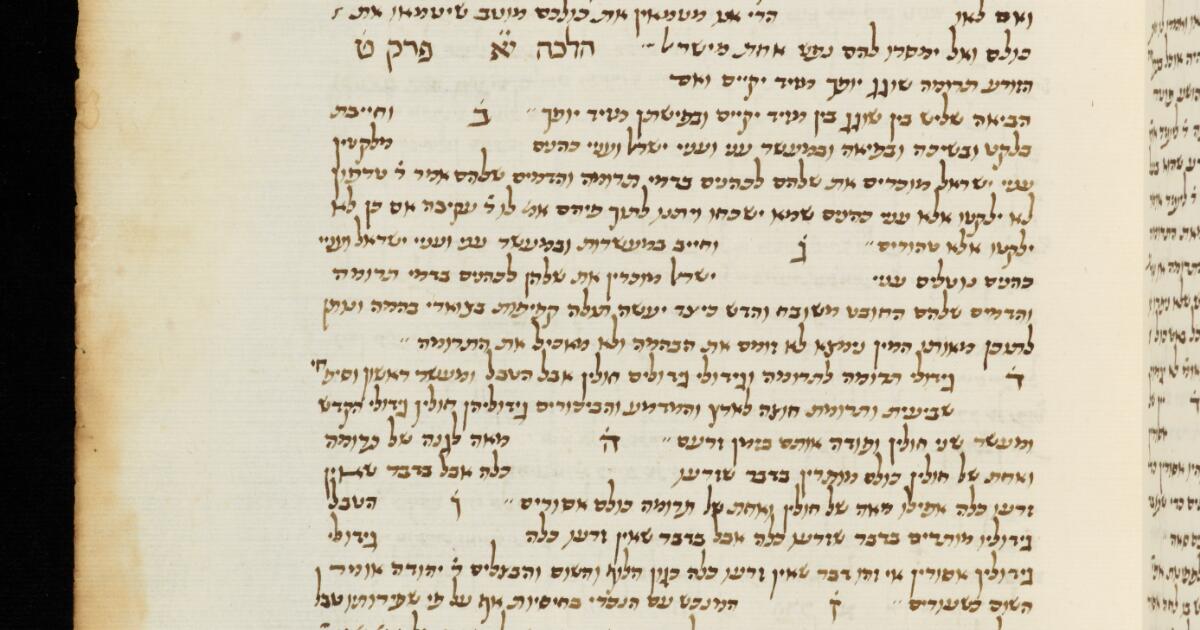 ואם לאו הרי אנו מטמאין את כולכם מוטב שיטמאו את
כולם ואל ימסרו להם נפש אחת מישראל הלכה יא פרק ט
הזורע תרומה שוגג יופך מזיד יקיים ואם
הביאה שליש בין שוגג בין מזיד יקיים ובפישתן מזיד יופך ב וחייבת
בלקט ובשכחה ובפיאה ובמעשר עני ועניי ישראל ועניי כהנים מלקטין
עניי ישראל מוכרים את שלהם לכהנים בדמי תרומה והדמים שלהם אמר ר טרפון
לא ילקטו אלא עניי כהנים שמא ישכחו ויתנו לתוך פיהם אמ לו ר עקיבה אם כן לא
ילקטו אלא טהורים ג וחייב במעשרות ובמעשר עני ועניי ישראל ועניי
כהנים נוטלים עניי ישראל מוכרין את שלהן לכהנים בדמי תרומה
והדמים שלהם החובט משובח והדש כיצד יעשה תולה קפיפות בצוארי בהמה ונותן
לתוכן מאותו המין נימצא לא זומם את הבהמה ולא מאכיל את התרומה
ד גידולי תרומה לתרומה וגידולי גידולים חולין אבל הטבל ומעשר ראשון וספיחי
שביעית ותרומת חוצה לארץ והמדמע והביכורים גידוליהן חולין גידולי הקדש
ומעשר שני חולין ופודה אותם בזמן זרעם ה מאה לגנה של תרומה
ואחת של חולין כולם מותרין בדבר שזרעו כלה אבל בדבר שאין
זרעו כלה אפילו מאה של חולין ואחת של תרומה כולם אסורים ו הטבל
גידוליו מותרים בדבר שזרעו כלה אבל בדבר שאין זרעו כלה גידולי
גידולין אסורין אי זהו דבר שאין זרעו כלה כגון הלוף והשום והבצלים ר יהודה אומר
השום כשעורים ז המנכש עם הנכרי בחסיות אף על פי שפירותיו טבל